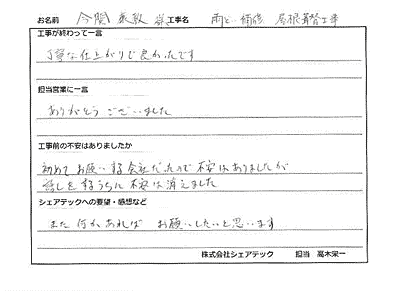 お名前 今関 様 工事名 雨とい補修 屋根葺替工事
工事が終わって一言
丁寧な仕上がりで良かったです
担当営業に一言
ありがとうございました
工事前の不安はありましたか
初めてお願いする会社だったので不安はありましたが
話しをするうちに不安は消えました
シェアテックへの要望・感想など
また何かあれば お願いしたいと思います
株式会社シェアテック 担当 高木栄一